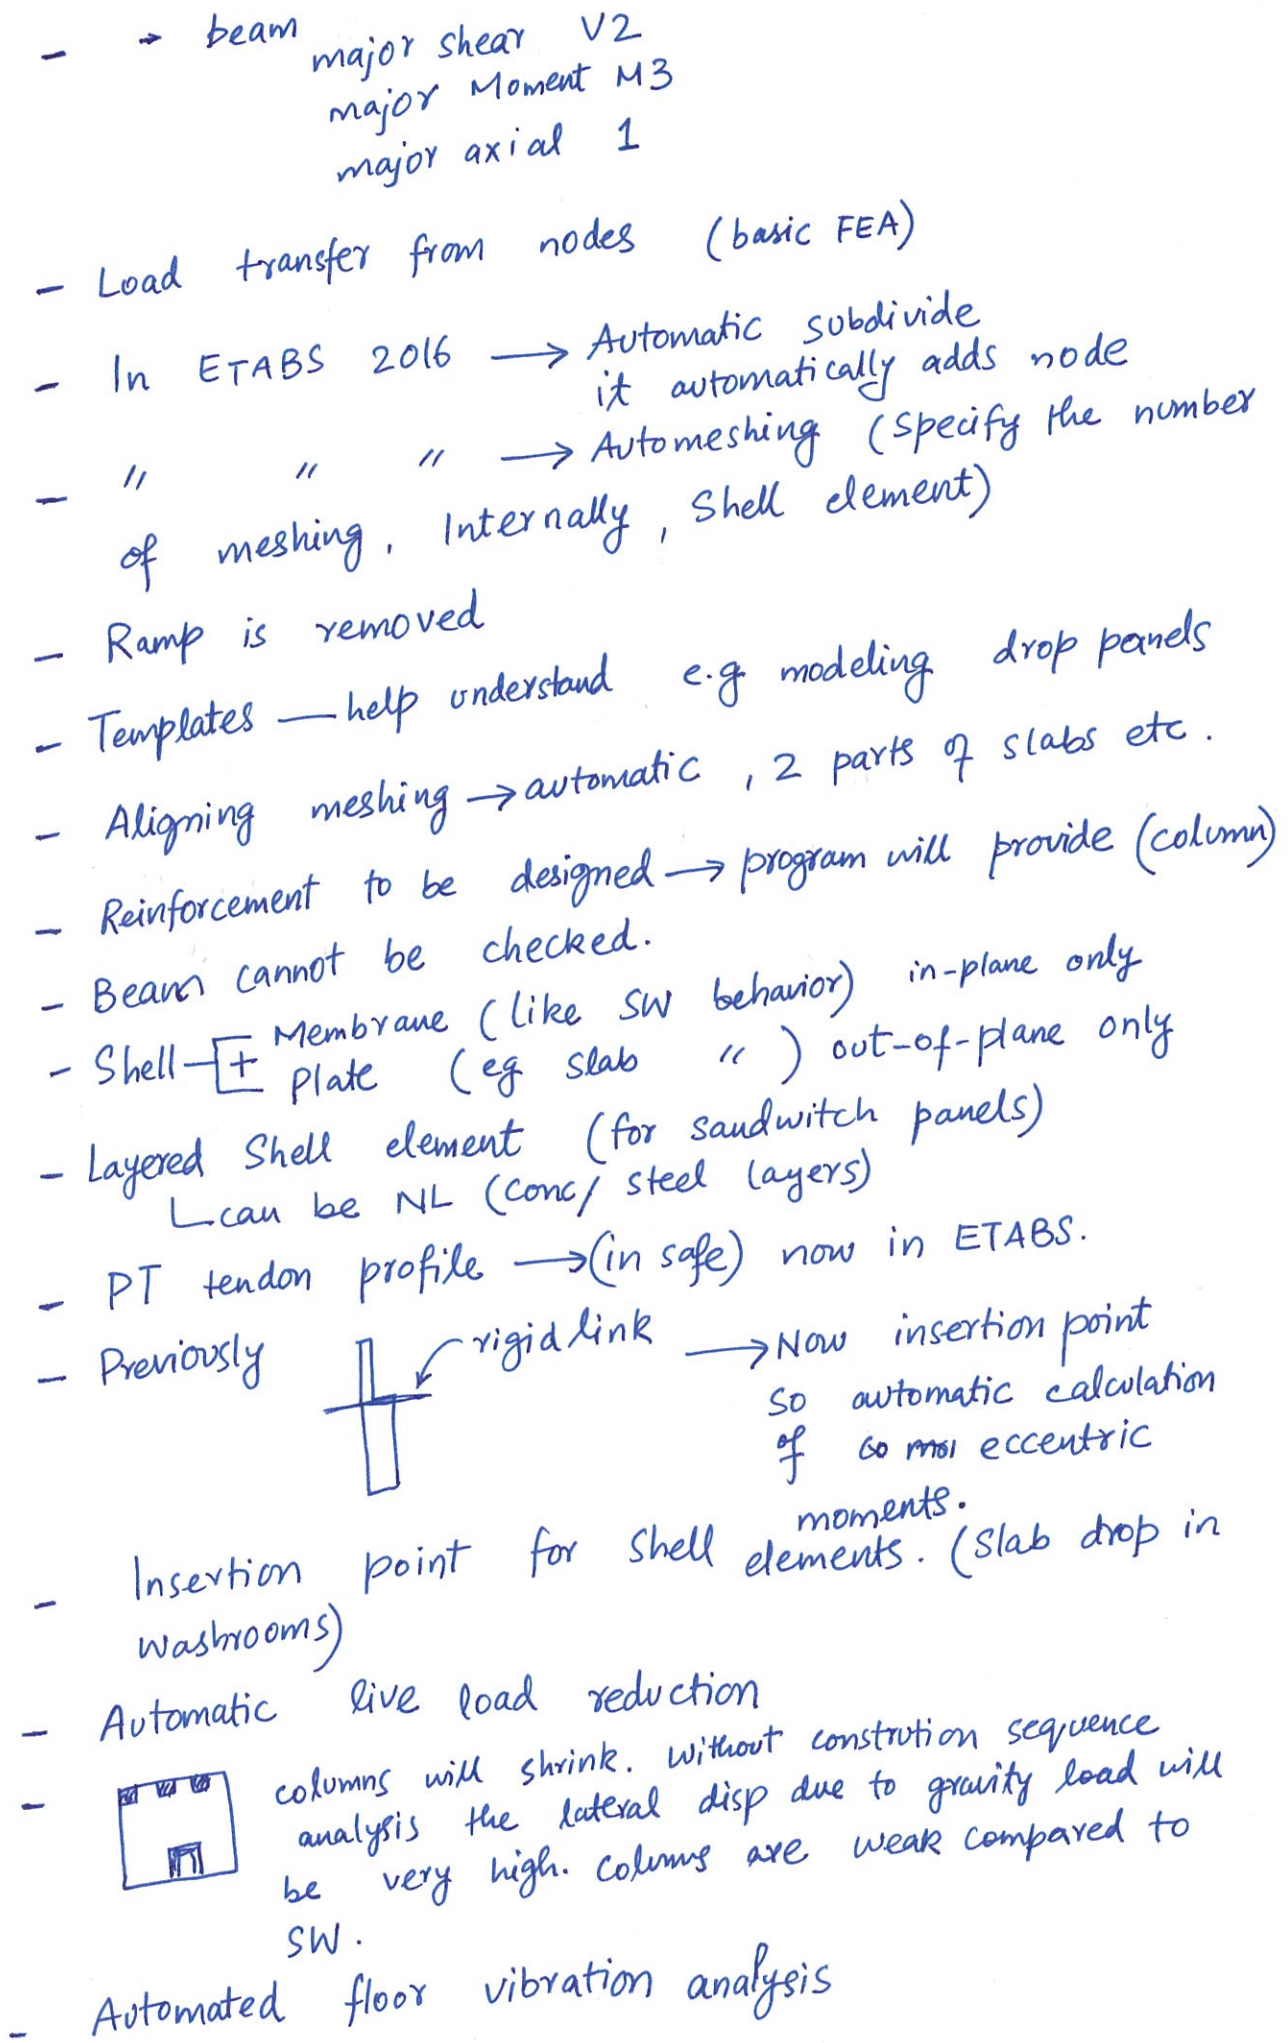 - → beam
major shear V2
major Moment M3
major axial 1
- Load transfer from nodes (basic FEA)
- In ETABS 2016 → Automatic subdivide
it automatically adds node
- " " " → Automeshing (Specify the number
of meshing, Internally, Shell element)
- Ramp is removed
- Templates — help understand e.g modeling drop panels
- Aligning meshing → automatic, 2 parts of slabs etc.
- Reinforcement to be designed → program will provide (column)
- Beam cannot be checked.
- Shell + Membrane (like SW behavior) in-plane only
Plate (eg slab " ) out-of-plane only
- Layered Shell element (for sandwitch panels)
can be NL (conc/ steel layers)
- PT tendon profile → (in safe) now in ETABS.
- Previously rigid link → Now insertion point
so automatic calculation
of eccentric
moments.
- Insertion point for shell elements. (slab drop in
washrooms)
- Automatic live load reduction
- columns will shrink. Without constrution sequence
analysis the lateral disp due to gravity load will
be very high. columns are weak compared to
SW.
- Automated floor vibration analysis